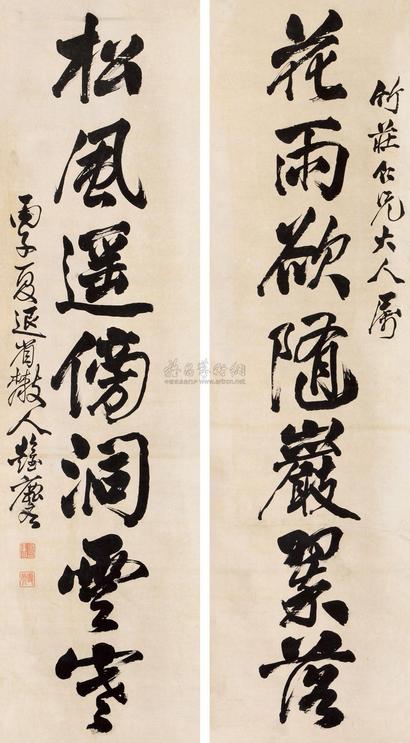 竹莊仁兄大人屬
花雨欲隨巖翠落
松風遥傍洞雲寒
丙子夏退省散人彭麐
www.artron.net